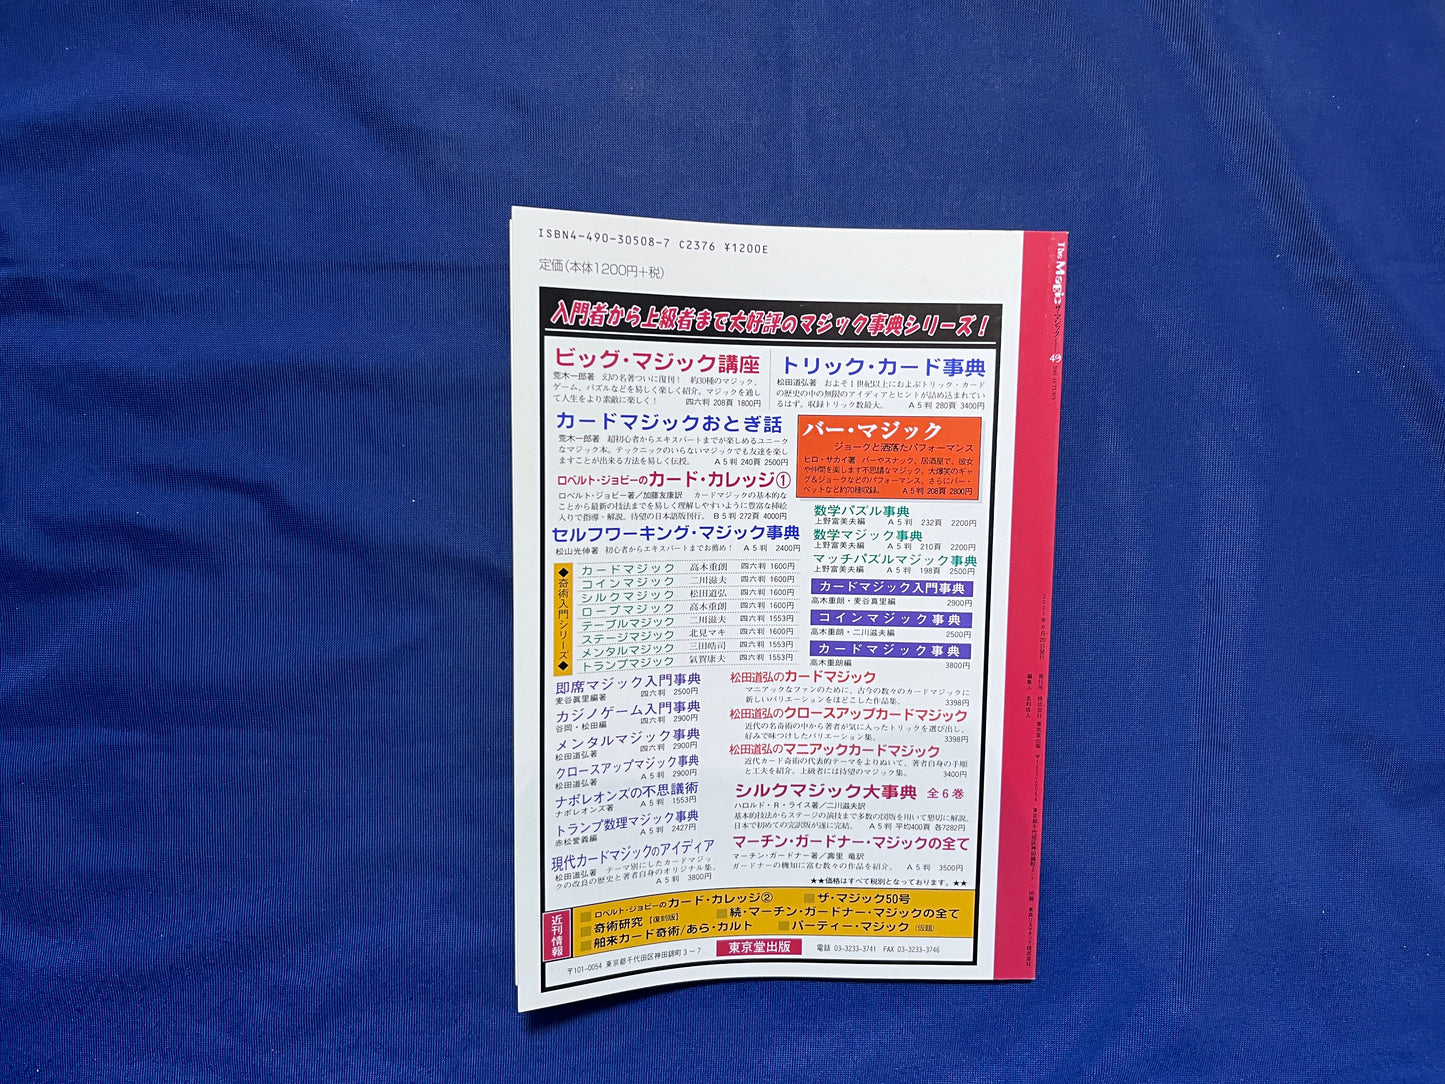 ISBN4-490-30508-7 C2376 ¥1200E
定価(本体1200円+税)
入門者から上級者まで大好評のマジック事典シリーズ!
ビッグ・マジック講座
荒木一郎著 幻の名著ついに復刊! 約30種のマジック、
ゲーム、パズルなどを易しく楽しく紹介。マジックを通し
て人生をより素敵に楽しく! 四六判 208頁 1800円
カードマジックおとぎ話
荒木一郎著 超初心者からエキスパートまでが楽しめるユニーク
なマジック本。テックニックのいらないマジックでも友達を楽し
ますことが出来る方法を易しく伝授。 A5判 240頁 2500円
ロベルト・ジョビーのカード・カレッジ①
ロベルト・ジョビー著/加藤友康訳 カードマジックの基本的な
ことから最新の技法までを易しく理解しやすいように豊富な挿絵
入りで指導・解説。待望の日本語版刊行。 B5判 272頁 4000円
セルフワーキング・マジック事典
松山光伸著 初心者からエキスパートまでお薦め! A5判 2400円
トリック・カード事典
松田道弘著 およそ1世紀以上におよぶトリック・カード
の歴史の中の無限のアイディアとヒントが詰め込まれてい
るはず、収録トリック数最大。 A5判 280頁 3400円
バー・マジック
ジョークと洒落たパフォーマンス
ヒロ・サカイ著 バーやスナック、居酒屋で、彼女
や仲間を楽します不思議なマジック、大爆笑のギャ
グ&ジョークなどのパフォーマンス、さらにバー・
ベットなど約70種収録。 A5判 208頁 2800円
数学パズル事典
上野富美夫編 A5判 232頁 2200円
数学マジック事典
上野富美夫編 A5判 210頁 2200円
マッチパズルマジック事典
上野富美夫編 A5判 198頁 2500円
◆奇術入門シリーズ◆
カードマジック 高木重朗 四六判 1600円
コインマジック 二川滋夫 四六判 1600円
シルクマジック 松田道弘 四六判 1600円
ロープマジック 高木重朗 四六判 1600円
テーブルマジック 二川滋夫 四六判 1553円
ステージマジック 北見マキ 四六判 1600円
メンタルマジック 三田皓司 四六判 1553円
トランプマジック 氣賀康夫 四六判 1553円
カードマジック入門事典
高木重朗・麦谷眞里編 2900円
コインマジック事典
高木重朗・二川滋夫編 2500円
カードマジック事典
高木重朗編 3800円
即席マジック入門事典
麦谷眞里編著 四六判 2500円
カジノゲーム入門事典
谷岡・松田編 四六判 2900円
メンタルマジック事典
松田道弘著 四六判 2900円
クロースアップマジック事典
松田道弘著 A5判 2900円
ナポレオンズの不思議術
ナポレオンズ著 A5判 1553円
トランプ数理マジック事典
赤松誉義編 A5判 2427円
現代カードマジックのアイディア
松田道弘著 テーマ別にしたカードマジッ
クの改良の歴史と著者自身のオリジナル集。
A5判 3800円
松田道弘のカードマジック
マニアックなファンのために、古今の数々のカードマジックに
新しいバリエーションをほどこした作品集。 3398円
松田道弘のクロースアップカードマジック
近代の名奇術の中から著者が気に入ったトリックを選び出し、
好みで味つけしたバリエーション集。 3398円
松田道弘のマニアックカードマジック
近代カード奇術の代表的テーマをよりぬいて、著者自身の手順
と工夫を紹介。上級者には待望のマジック集。 3400円
シルクマジック大事典 全6巻
ハロルド・R・ライス著/二川滋夫訳
基本的技法からステージの演技まで多数の図版を用いて懇切に解説。
日本で初めての完訳版が遂に完結。 A5判 平均400頁 各7282円
マーチン・ガードナー・マジックの全て
マーチン・ガードナー著/壽里 竜訳
ガードナーの機知に富む数々の作品を紹介。 A5判 3500円
★★価格はすべて税別となっております。★★
近刊情報
ロベルト・ジョビーのカード・カレッジ②
ザ・マジック50号
奇術研究【復刻版】
続・マーチン・ガードナー・マジックの全て
舶来カード奇術/あら・カルト
パーティー・マジック(仮題)
〒101-0054 東京都千代田区神田錦町3-7 東京堂出版 電話 03-3233-3741 FAX 03-3233-3746
The Magic ザ・マジック 49 2001 AUTUMN
2001年9月20日発行
編集人 名和成人
発行所 株式会社 東京堂出版 〒101-0054 東京都千代田区神田錦町3-7
印刷 東京リスマチック株式会社